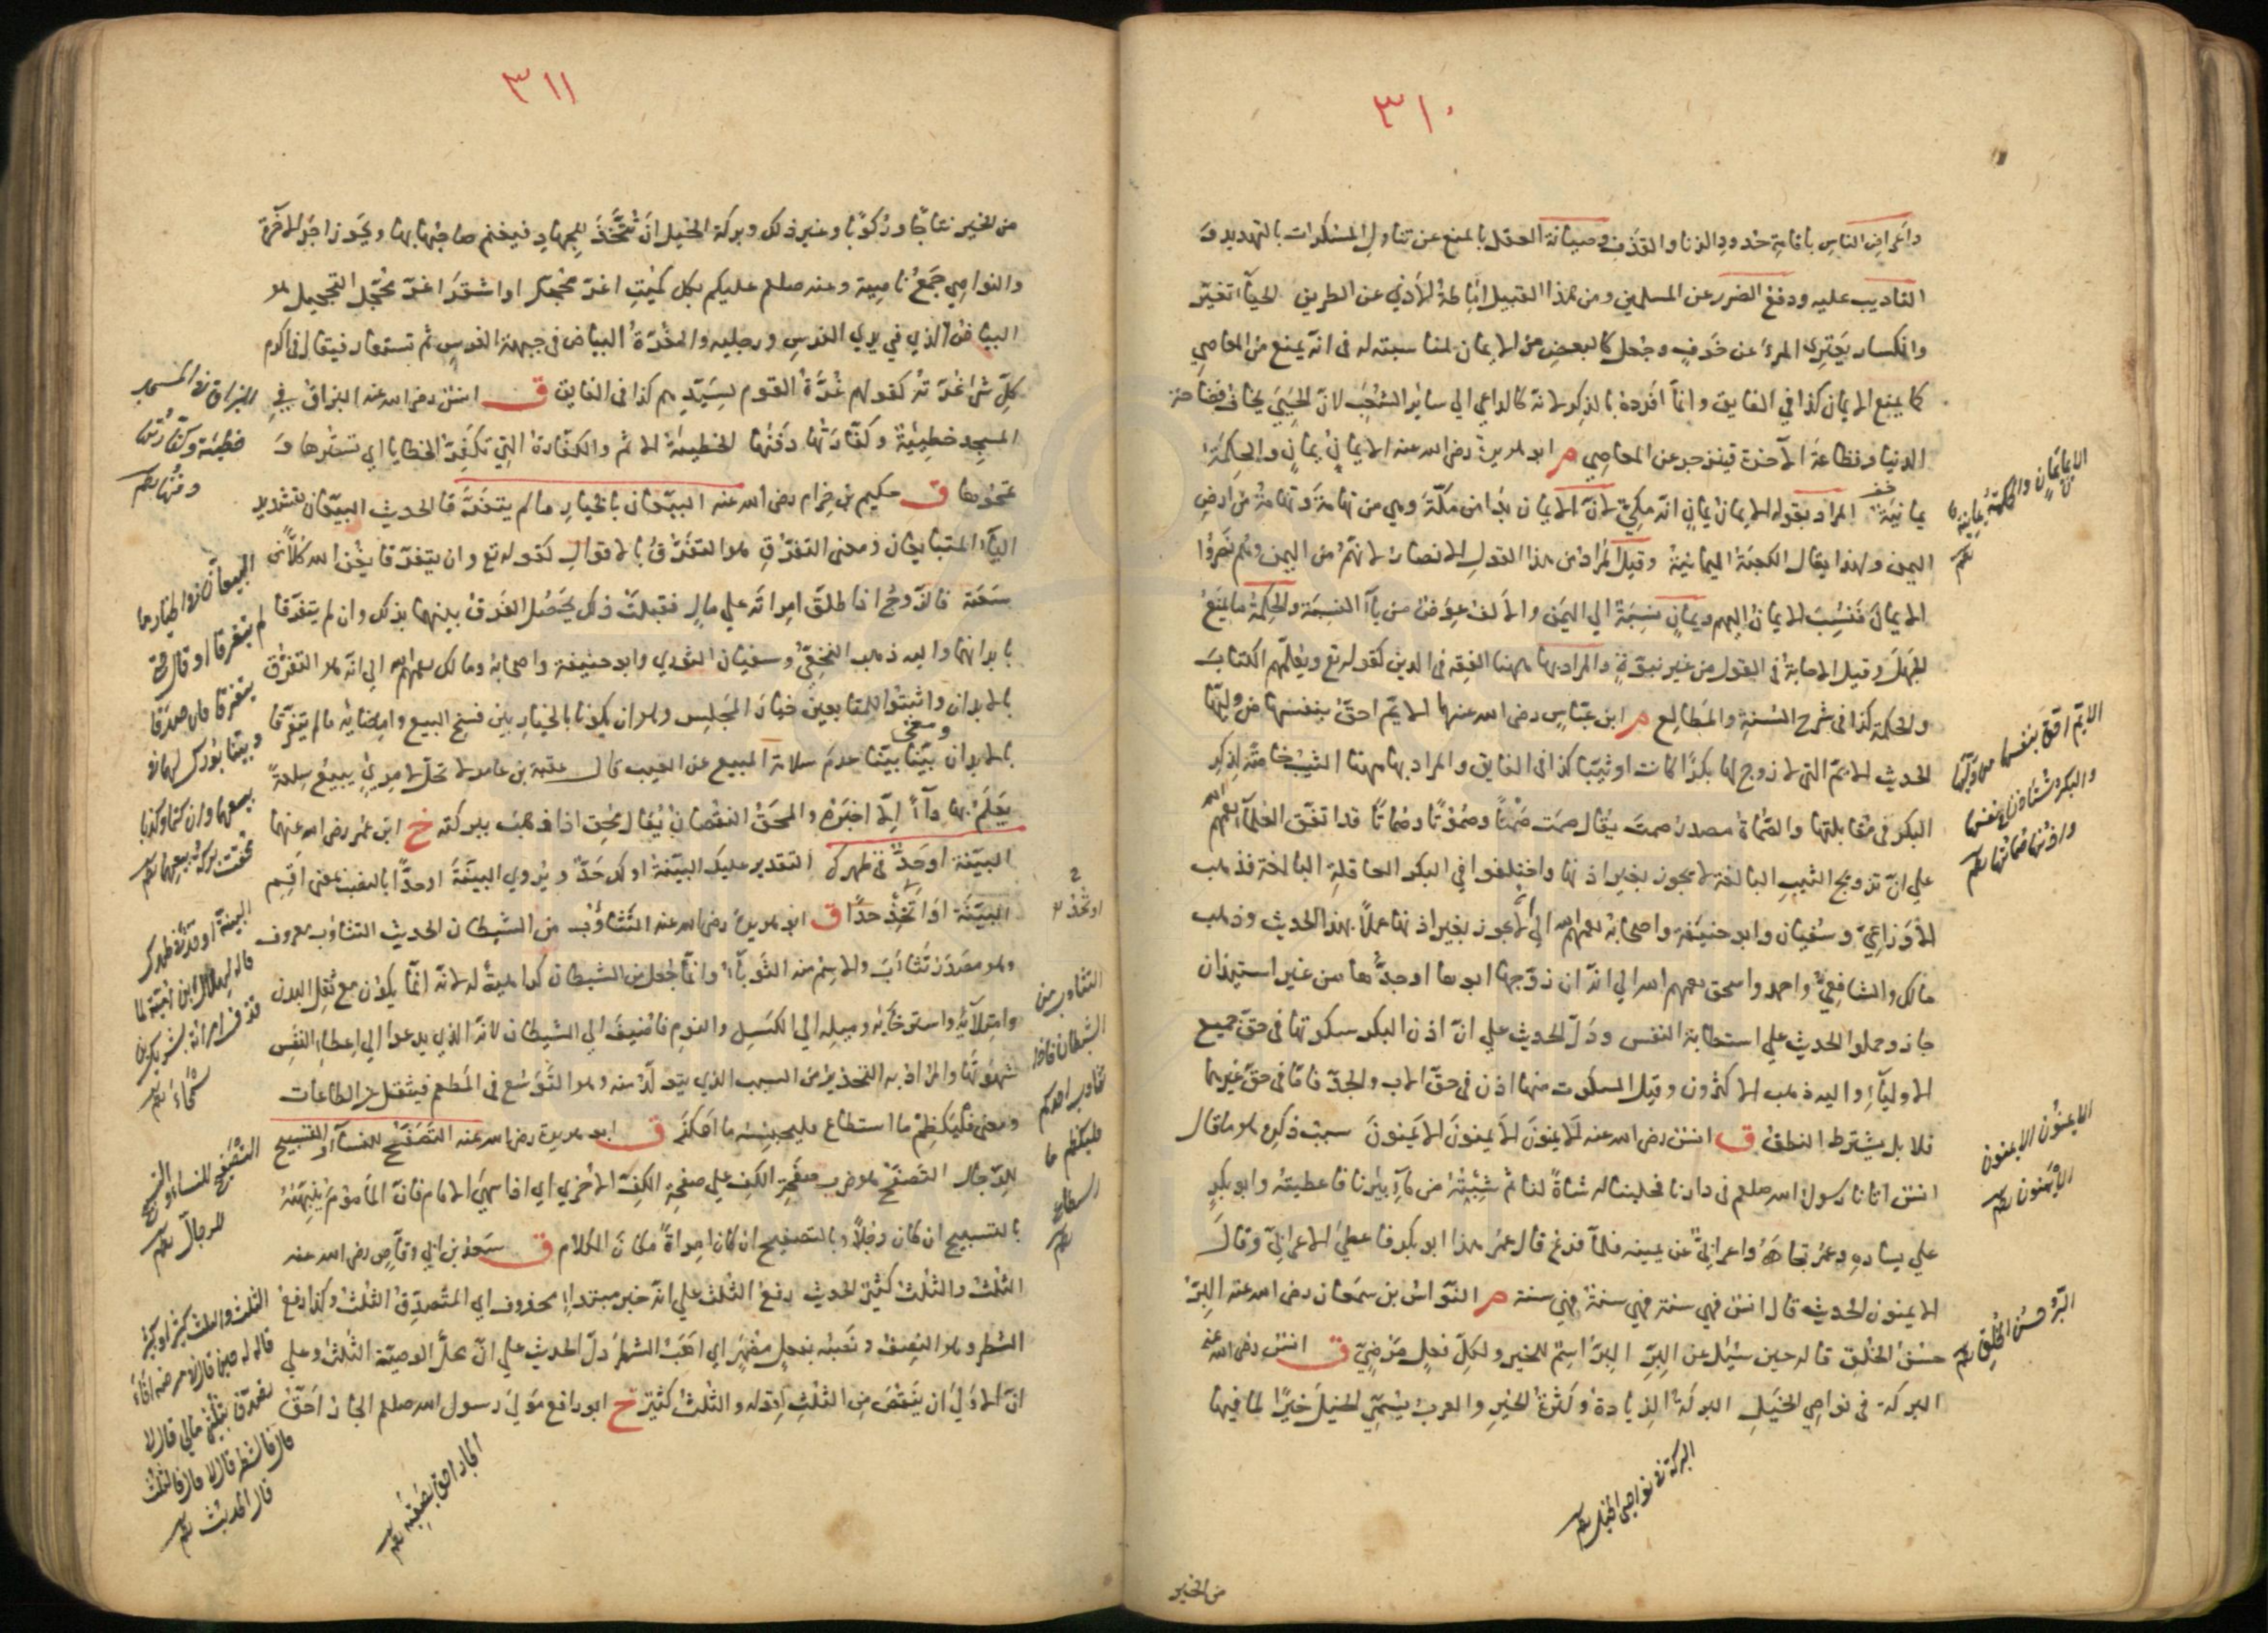 ٣١٠
واعراض الناس باقامة حدود الزنا والقذف وصيانة العقل بالمنع عن تناول المسكرات بالتهديد و
التاديب عليه ودفع الضرر عن المسلمين ومن هذا القبيل اماطة الأذي عن الطريق الحيآ تغيّر
وانكسار يعتري المرء عن خوف وجعل كالبعض من الايمان لمناسبته له في انّه يمنع من المعاصي
كما يمنع الايمان كذا في الفايق وانمّا افرده بالذكر لانه كالداعي الي سائر الشعب لانّ الحييّ يخاف فضاحة
الدنيا وفظاعة الآخرة فينزجر عن المعاصي م ابو هريرة رضي الله عنه الايمان يمانٍ والحكمة
يمانية المراد بقوله الايمان يمانٍ انّه مكيّ لانّ الايمان بدا من مكّة وهي من تهامة وتهامة من ارض
اليمن ولهذا يقال الكعبة اليمانية وقيل المراد من هذا القول الانصار لانهم من اليمن وهم نصروا
الايمان فنسب الايمان اليهم ويمانٍ نسبة الي اليمن والالف عوض من يآ النسبة والحكمة ما يمنع
الجهل وقيل الاصابة في القول من غير نبوّة والمراد بها ههنا الفقه في الدين كقوله تع ويعلّمهم الكتاب
والحكمة كذا في شرح السنة والمطالع م ابن عبّاس رضي الله عنهما الايّم احقّ بنفسها من وليّها
الحديث الايّم التي لا زوج لها بكرًا كانت او ثيّبًا كذا في الفايق والمراد بها ههنا الثيب خاصّة لذكر
البكر في مقابلتها والصُّمات مصدر صمت يقال صمت صَمْتًا وصُموتًا وصُماتًا قد اتفق العلمآ رحمهم الله
علي انّ تزويج الثيب البالغة لا يجوز بغير اذنها واختلفوا في البكر العاقلة البالغة فذهب
الاوزاعيّ وسفيان وابو حنيفة واصحابه رحمهم الله الي انّه لا يجوز بغير اذنها عملًا بهذا الحديث وذهب
مالك والشافعيّ واحمد واسحق رحمهم الله الي انّه ان زوّجها ابوها او جدّها من غير استيذان
جاز وحملوا الحديث علي استطابة النفس ودلّ الحديث علي انّ اذن البكر سكوتها في حقّ جميع
الاوليآء واليه ذهب الاكثرون وقيل السكوت منها اذن في حقّ الاب والجدّ فامّا في حقّ غيرهما
فلا بل يشترط النطق ق انس رضي الله عنه الايمنون الايمنون الايمنون سبب ذكره هو ما قال
انس اتانا رسول الله صلعم في دارنا فحلبنا له شاة لنا ثم شِبْتُه من مآء بئرنا فاعطيته وابو بكر
علي يساره وعمر تجاهه واعرابيّ عن يمينه فلمّا فرغ قال عمر هذا ابو بكر فاعطي الاعرابيّ وقال
الايمنون الحديث قال انس فهي سنة فهي سنة فهي سنة م النوّاس بن سمعان رضي الله عنه البرّ
حسن الخلق قاله حين سئل عن البرّ البرّ اسم للخير ولكلّ فعلٍ مرضيّ ق انس رضي الله عنه
البركة في نواصي الخيل البركة الزيادة وكثرة الخير والعرب يسمّي الخيل خيرًا لما فيها
الايمان يمانٍ والحكمة يمانية
الايّم احقّ بنفسها من وليّها
والبكر تستاذن في نفسها
واذنها صماتها
الايمنون الايمنون
الايمنون
البرّ حسن الخلق
البركة في نواصي الخيل
من الخير
٣١١
من الخير نتاجًا وركوبًا وغير ذلك وبركة الخيل ان تتّخذ للجهاد فيغنم صاحبها بها ويحوز اجر الآخرة
والنواصي جمع ناصية وعنه صلعم عليكم بكل كميت اغرّ محجّل او اشقر اغرّ محجّل التحجيل هو
البياض الذي في يدي الفرس ورجليه والغرّة البياض في جبهة الفرس ثم تستعار فيقال في اكرم
كلّ شئ غرّته كقولهم غرّة القوم لسيّدهم كذا في الفايق ق انس رضي الله عنه البزاق في
المسجد خطيئة وكفّارتها دفنها الخطيئة الاثم والكفّارة التي تكفّر الخطايا اي تسترها و
تمحوها ق حكيم بن حزام رضي الله عنه البيّعان بالخيار ما لم يتفرّقا الحديث البيّعان بتشديد
اليآ المتبايعان ومعنى التفرّق هو التفرّق بالاقوال كقوله تع وان يتفرّقا يغن الله كلًّا من
سعته فالزوج اذا طلّق امراته علي مالٍ فقبلت ذلك يحصل الفرق بينهما بذلك وان لم يتفرّقا
بابدانهما واليه ذهب النخعيّ وسفيان الثوري وابو حنيفة واصحابه ومالك رحمهم الله الي انّه هو التفرّق
بالابدان واثبتوا للمتبايعين خيار المجلس وهو ان يكونا بالخيار بين فسخ البيع وامضائه ما لم يتفرّقا
بالابدان ومعنى بيّنا بيّنا عدم سلامة المبيع عن العيب قال عقبة بن عامر لا يحلّ لامرئٍ يبيع سلعةً
يعلم بها دآءً الّا اخبره والمحق النقصان يقال مُحق اذا ذهب ببركته خ ابن عمر رضي الله عنهما
البيّنة او حدّ في ظهرك التقدير عليك البيّنة او لك حدّ ويروي البينة او حدًّا بالنصب بمعنى اقم
البيّنة او اتّخذ حدًّا ق ابو هريرة رضي الله عنه التثاؤب من الشيطان الحديث التثاؤب معروف
وهو مصدر تثاءب والاسم منه الثوبآء وانّما جعل من الشيطان كراهية له لانّه انّما يكون مع ثقل البدن
وامتلآئه واسترخآئه وميله الي الكسل والنوم فاضيف الي الشيطان لانّه الذي يدعوا الي اعطاء النفس
شهوتها والمراد به التحذير من السبب الذي يتولّد منه وهو التوسّع في المطعم فيثقل عن الطاعات
ومعنى فليكظم ما استطاع فليحبسه ما امكنه ق ابو هريرة رضي الله عنه التصفيح للنسآء والتسبيح
للرّجال التصفيح هو ضرب صفحة الكفّ علي صفحة الكفّ الاخري اي اذا سهي الامام فانّ المأموم ينبّهه
بالتسبيح ان كان رجلًا وبالتصفيح ان كان امراةً مكان الكلام ق سعد بن ابي وقّاص رضي الله عنه
الثلث والثلث كثير الحديث رفع الثلث علي انّه خبر مبتدإ محذوف اي المتصدّق الثلث وكذا رفع
الشطر وهو النصف ونصبه بفعل مضمر اي اهب الشطر دلّ الحديث علي انّ محلّ الوصيّة الثلث وعلي
انّ الاولي ان ينقص من الثلث لقوله والثلث كثير خ ابو رافع مولي رسول الله صلعم الجار احقّ
البزاق في المسجد
خطيئة وكفّارتها
دفنها
البيعان بالخيار ما
لم يتفرقا او قال حتى
يتفرقا فان صدقا
وبيّنا بورك لهما في
بيعهما وان كتما وكذبا
محقت بركة بيعهما
البينة او حدّ في ظهرك
قاله لهلال ابن امية لما
قذف امراته بشريك بن
سحماء
او تحدّ
التثاوب من
الشيطان فاذا
تثاوب احدكم
فليكظم ما
استطاع
التصفيح للنساء والتسبيح
للرجال
الثلث والثلث كثير او كبير
قاله له حين قال في مرضه
افاتصدّق بثلثي مالي قال لا
قال فالشطر قال لا قال فالثلث
قال الحديث
الجار احق بصقبه